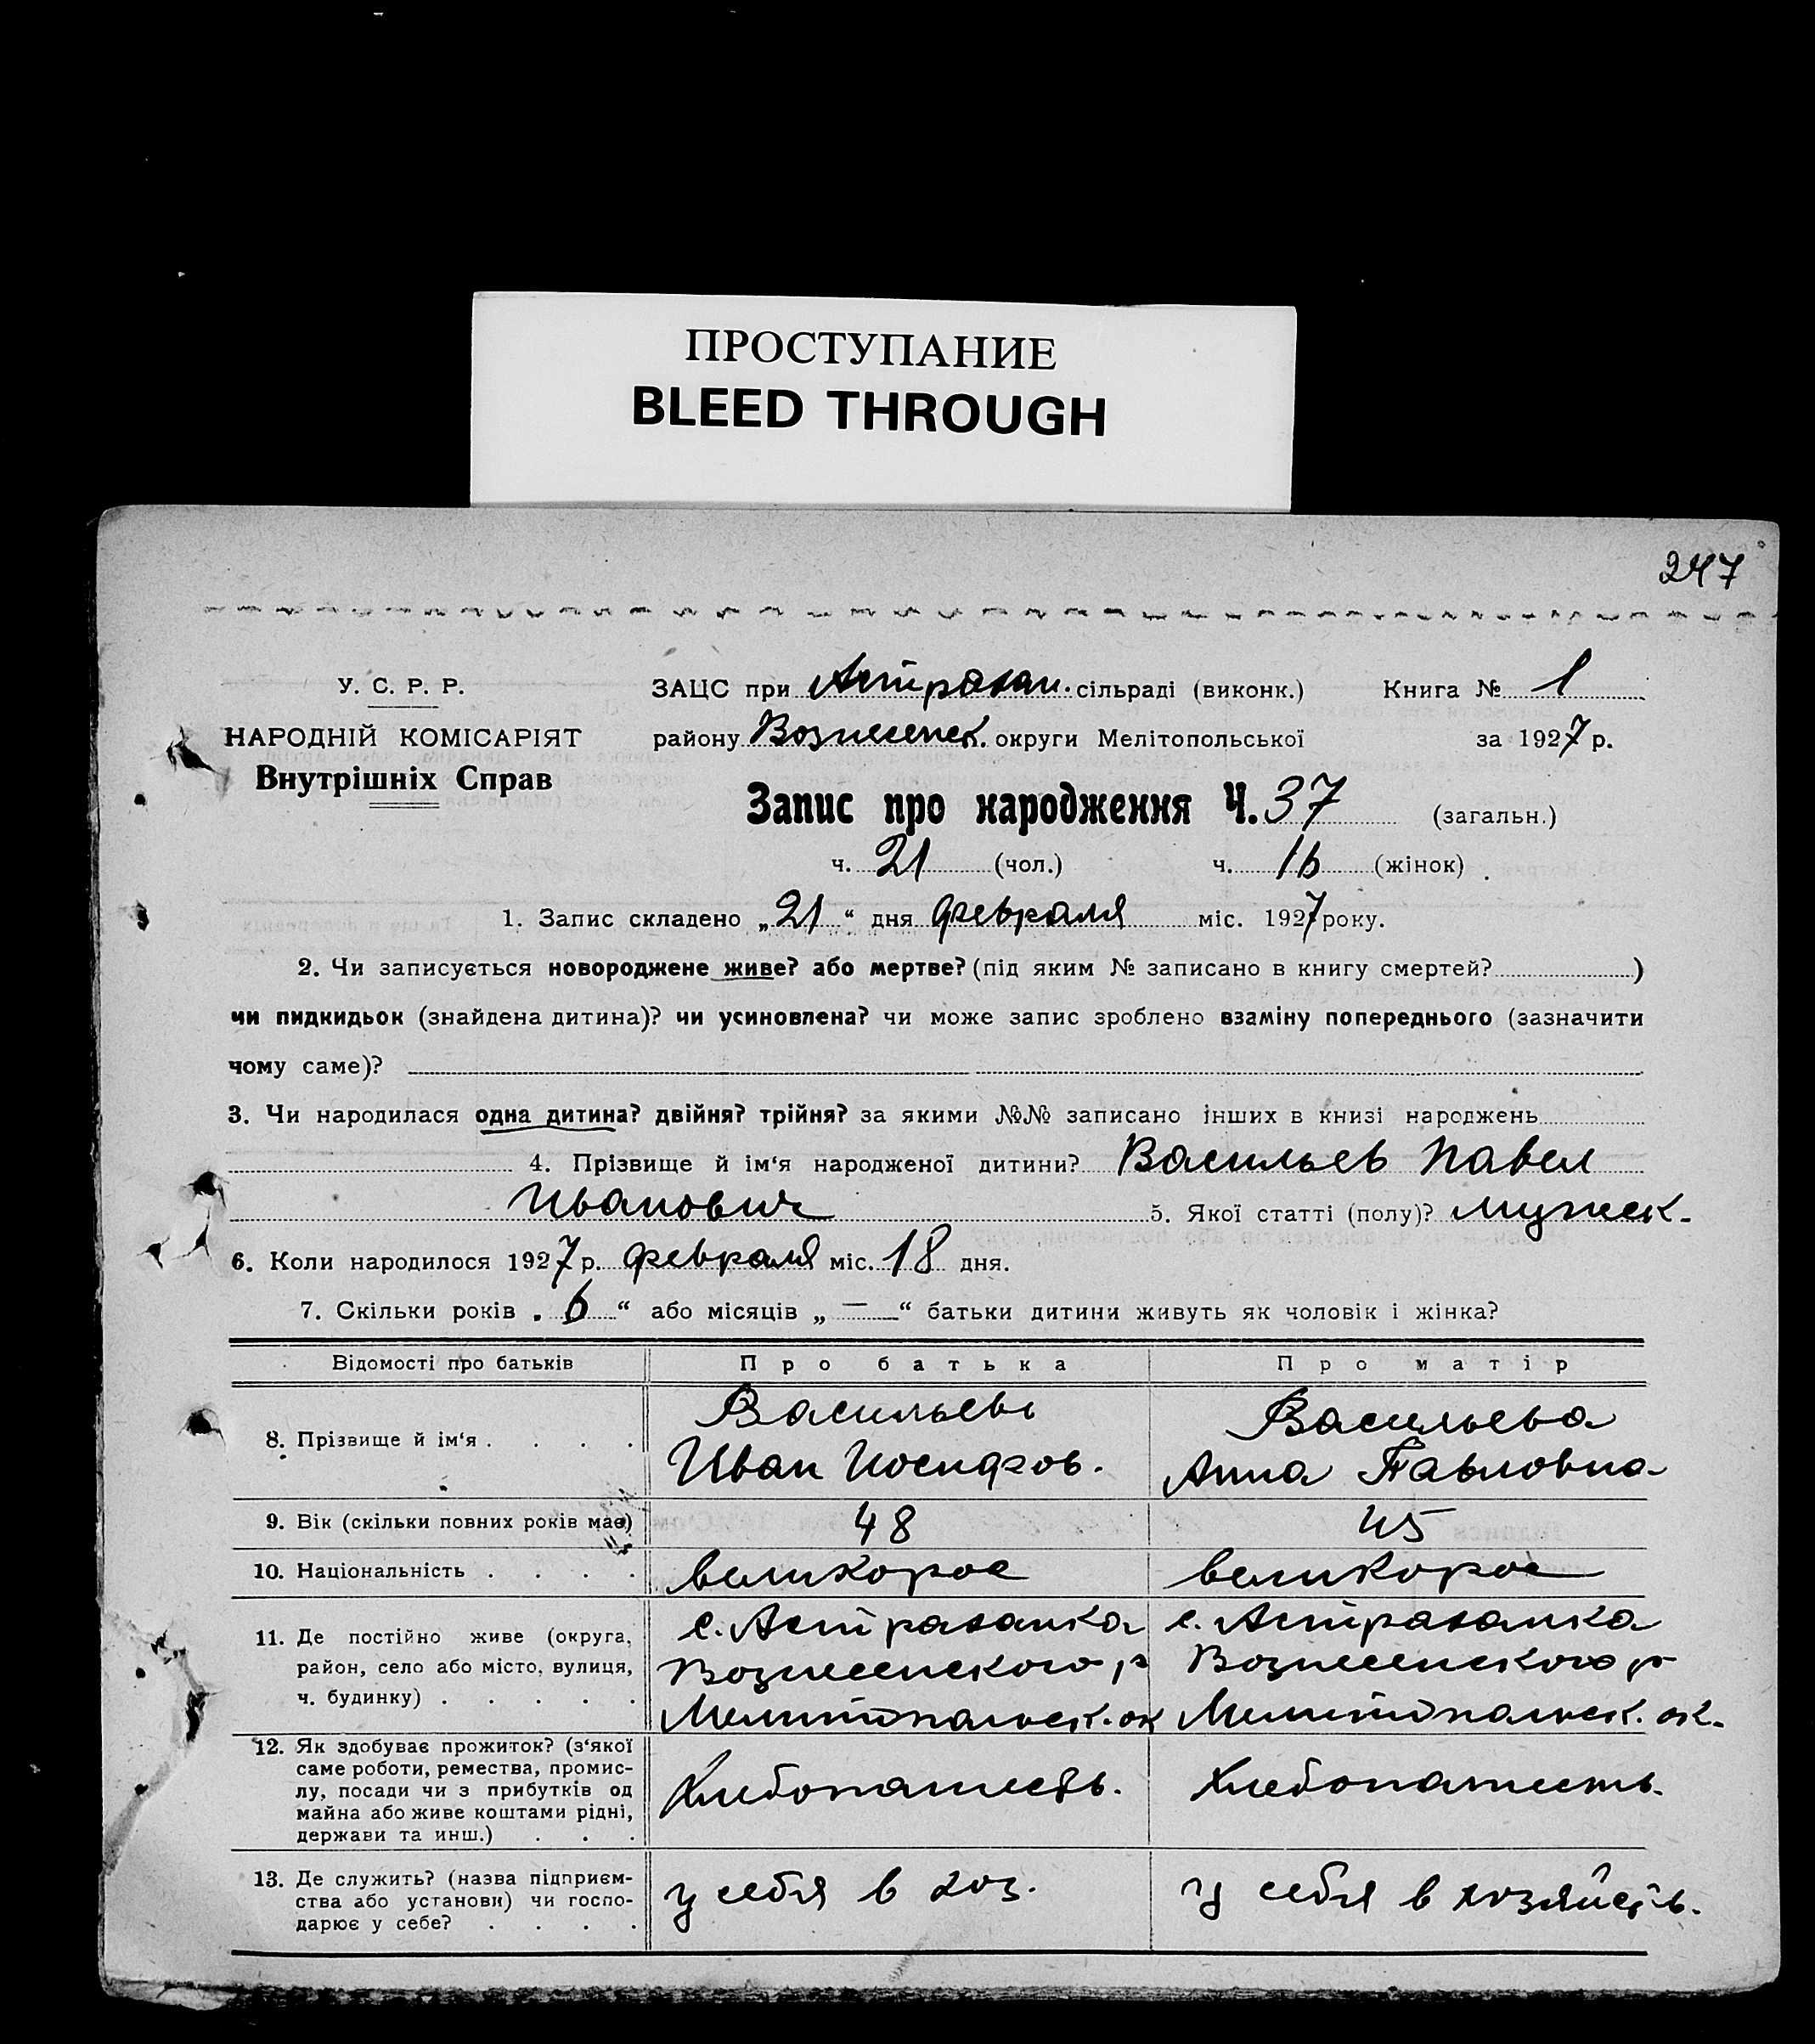 ПРОСТУПАНИЕ
BLEED THROUGH
247
У. С. Р. Р.
НАРОДНІЙ КОМІСАРІЯТ
Внутрішніх Справ
ЗАЦС при Астрахан. сільраді (виконк.) Книга № 1
району Вознесенск. округи Мелітопольської за 1927 р.
Запис про народження Ч. 37 (загальн.)
ч. 21 (чол.) ч. 16 (жінок)
1. Запис складено „21“ дня февраля міс. 1927 року.
2. Чи записується новороджене живе? або мертве? (під яким № записано в книгу смертей? )
чи пидкидьок (знайдена дитина)? чи усиновлена? чи може запис зроблено взаміну попереднього (зазначити
чому саме)?
3. Чи народилася одна дитина? двійня? трійня? за якими №№ записано інших в книзі народжень
4. Прізвище й ім‘я народженої дитини? Васильев Павел
Иванович 5. Якої статті (полу)? мужск.
6. Коли народилося 1927 р. февраля міс. 18 дня.
7. Скільки років „6“ або місяців „—“ батьки дитини живуть як чоловік і жінка?
Відомості про батьків Про батька Про матір
8. Прізвище й ім‘я . . . .
Васильевъ
Иван Иосифов.
Васильева
Анна Павловна
9. Вік (скільки повних років має) 48 45
10. Національність . . . . великорос великорос
11. Де постійно живе (округа,
район, село або місто, вулиця,
ч. будинку) . . . . .
с. Астраханка
Вознесенского р
Мелитопольск. ок
с. Астраханка
Вознесенского р
Мелитопольск. ок.
12. Як здобуває прожиток? (з‘якої
саме роботи, ремества, промис-
лу, посади чи з прибутків од
майна або живе коштами рідні,
держави та инш.) . . .
Хлебопашеств.
Хлебопашеств.
13. Де служить? (назва підприєм-
ства або установи) чи госпо-
дарює у себе? . . . .
у себя в хоз.
у себя в хозяйств.